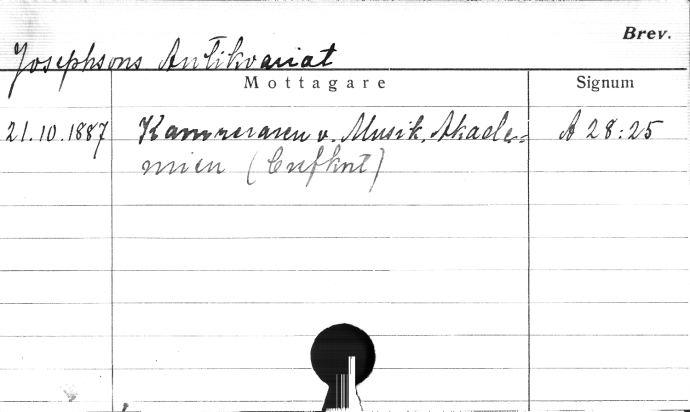 Brev.
Josephsons Antikvariat
Mottagare Signum
21.10.1887 Kamreraren v. Musik. Akade-
mien (Brefkort) A 28:25